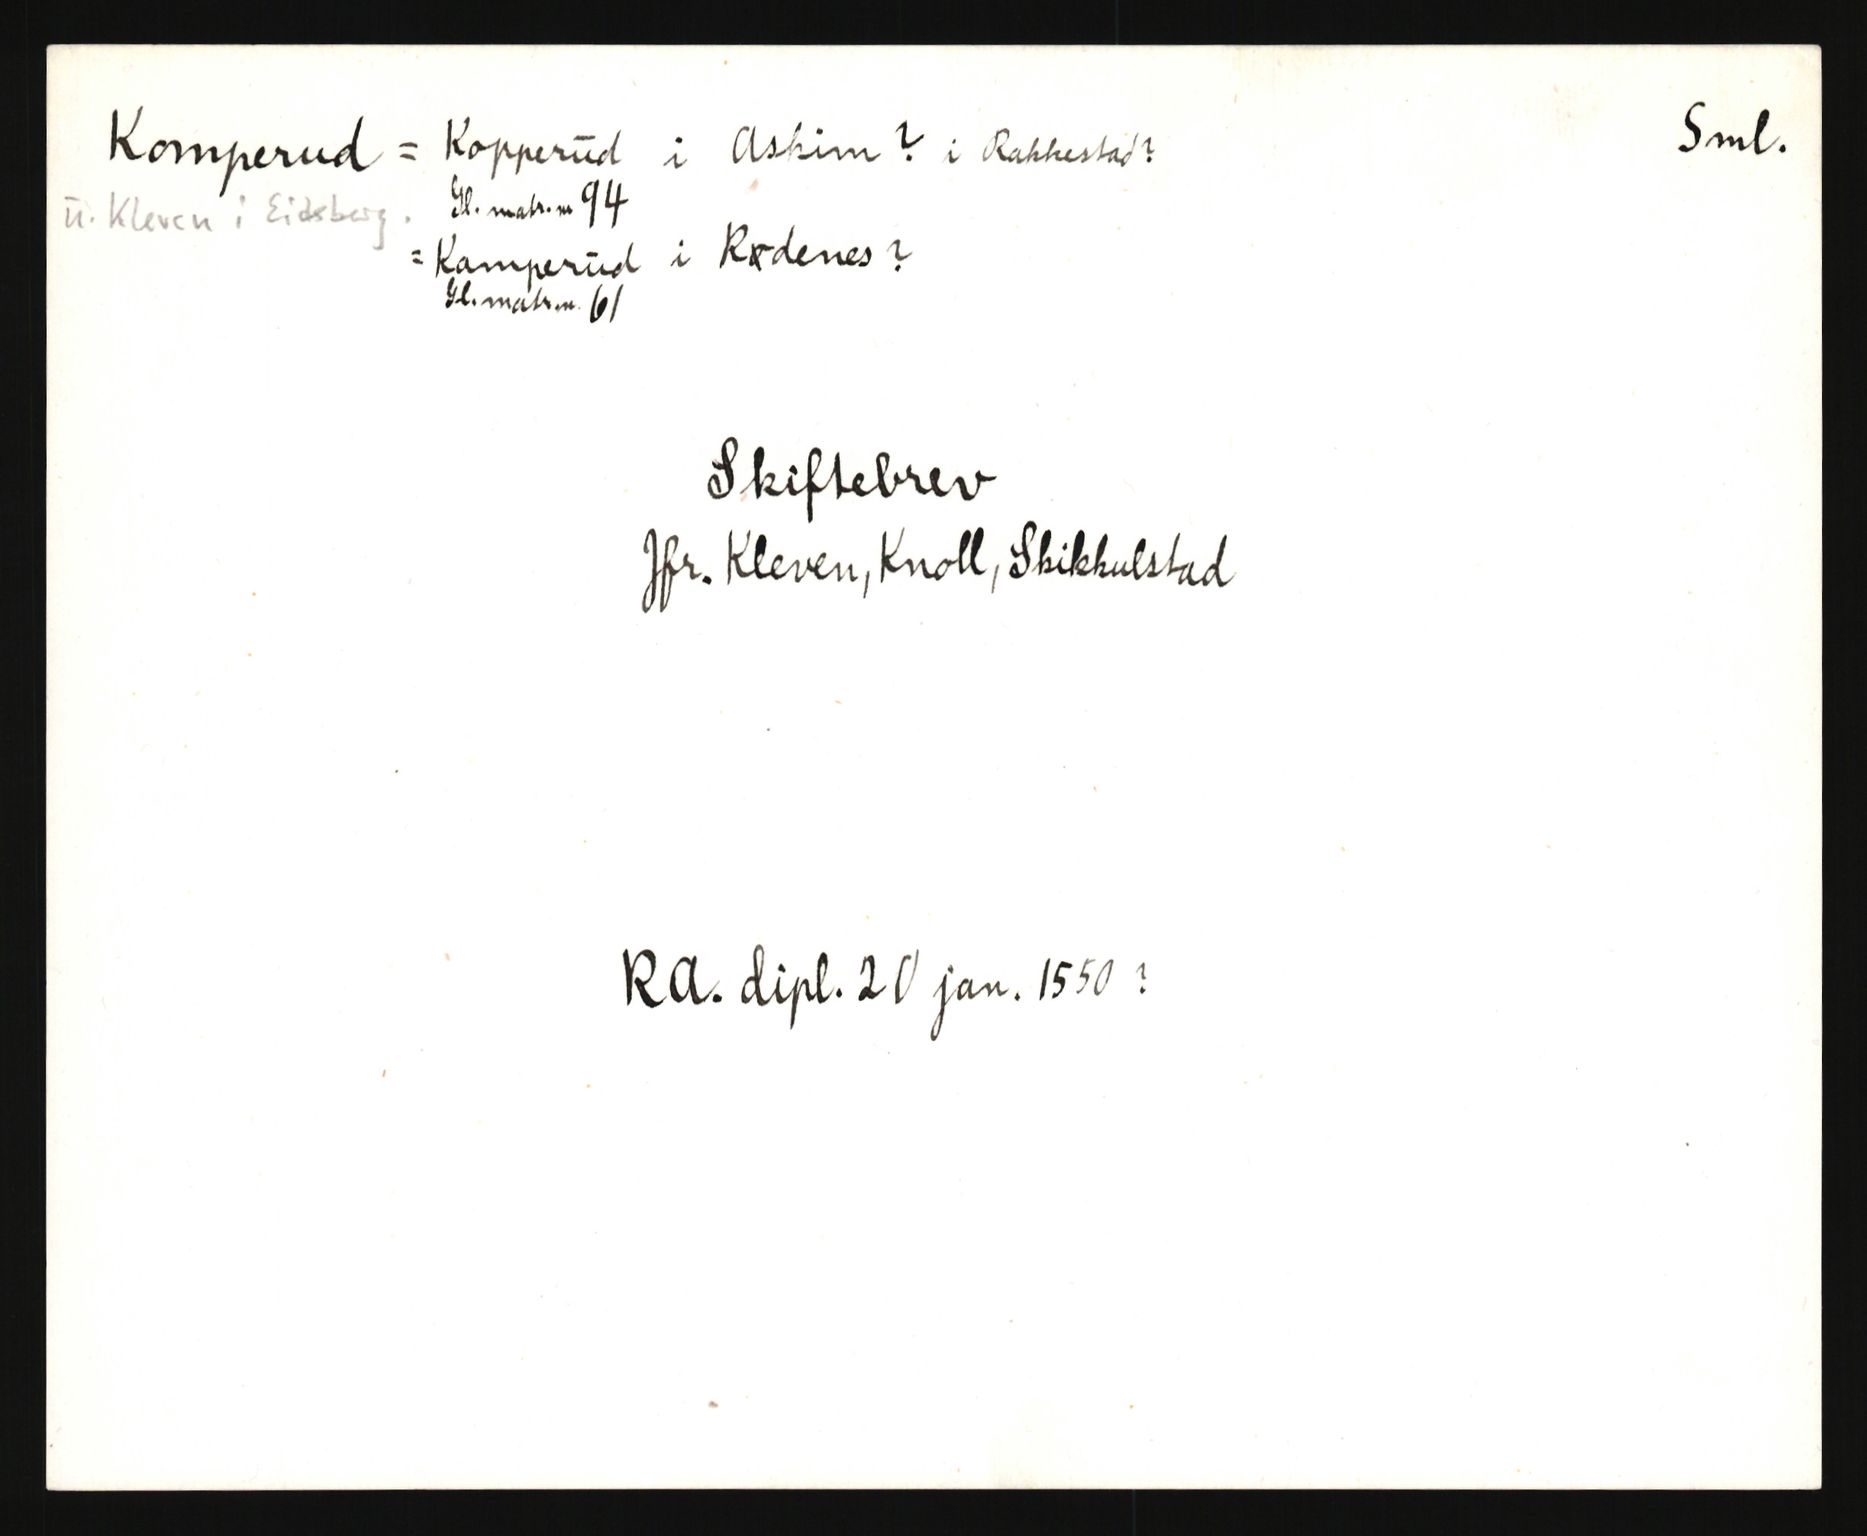 Komperud = Kopperud i Askim? i Rakkestad? Sml.
u. Kleven i Eidsberg. Gl. matr. nr 94
= Kamperud i Rødenes?
Gl. matr. nr. 61
Skiftebrev
Jfr. Kleven, Knoll, Skikkulstad
RA. dipl. 20 jan. 1550?